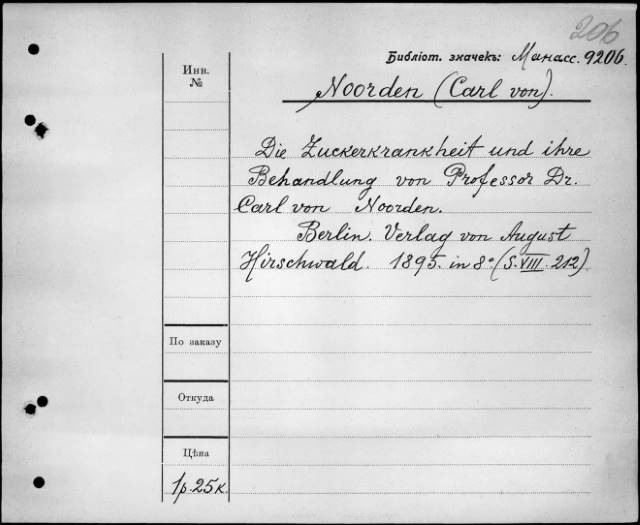 206
Библіот. значекъ: Манасс. 9206.
Инв.
№
Noorden (Carl von).
Die Zuckerkrankheit und ihre
Behandlung von Professor Dr.
Carl von Noorden.
Berlin. Verlag von August
Hirschwald. 1895. in 8° (S. VIII. 212)
По заказу
Откуда
Цѣна
1р. 25к.